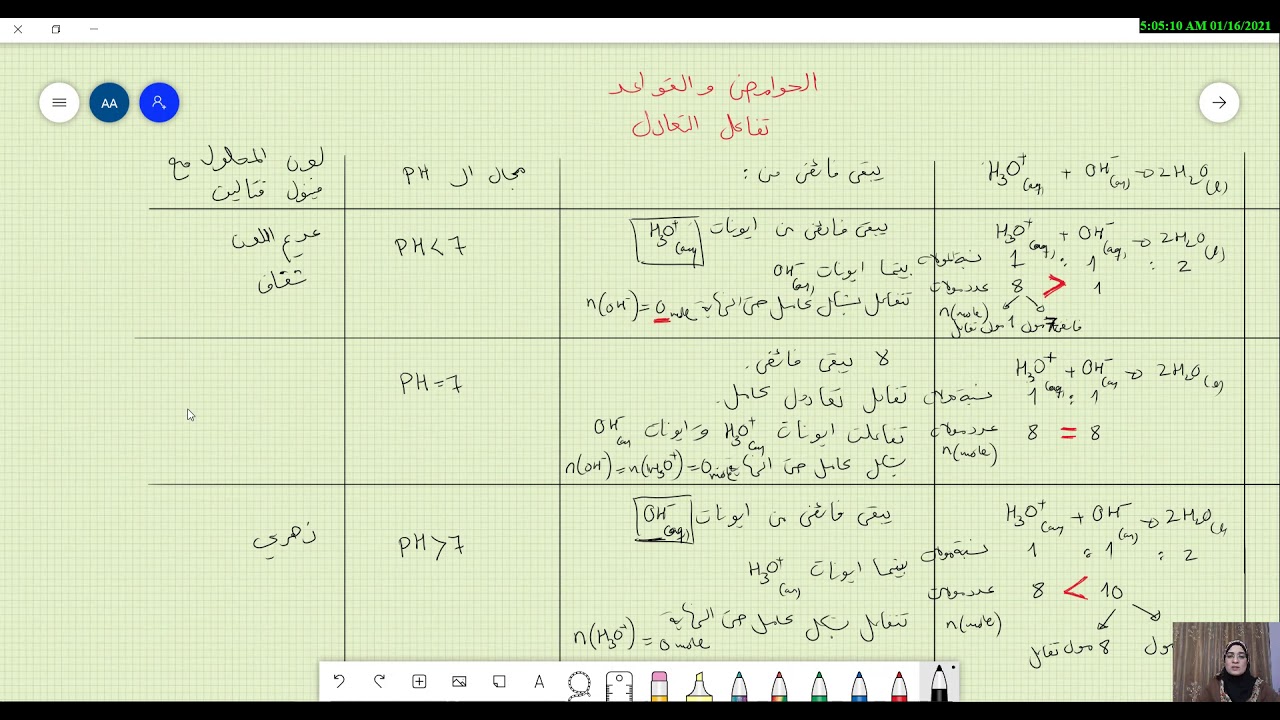 5:05:10 AM 01/16/2021
AA
الحوامض والقواعد
تفاعل التعادل
H₃O⁺(aq) + OH⁻(aq) → 2H₂O(l)
يبقى فائض من :
مجال ال PH
لون المحلول مع
فينول فتالين
H₃O⁺(aq) + OH⁻(aq) → 2H₂O(l)
نسبة مولات 1 : 1 : 2
عدد مولات 8 > 1
n(mole)
فائض 7 مول 1 مول تفاعل
يبقى فائض من ايونات H₃O⁺(aq)
بينما ايونات OH⁻(aq)
تتفاعل بشكل كامل حتى النهاية n(OH⁻) = 0 mole
PH < 7
عديم اللون
شفاف
H₃O⁺(aq) + OH⁻(aq) → 2H₂O(l)
نسبة مولات 1 : 1
عدد مولات 8 = 8
n(mole)
لا يبقى فائض.
تفاعل تعادل كامل.
تفاعلت ايونات H₃O⁺(aq) وايونات OH⁻(aq)
بشكل كامل حتى النهاية n(OH⁻) = n(H₃O⁺) = 0 mole
PH = 7
H₃O⁺(aq) + OH⁻(aq) → 2H₂O(l)
نسبة مولات 1 : 1 : 2
عدد مولات 8 < 10
n(mole)
8 مول تفاعل
مول
يبقى فائض من ايونات OH⁻(aq)
بينما ايونات H₃O⁺(aq)
تتفاعل بشكل كامل حتى النهاية
n(H₃O⁺) = 0 mole
PH > 7
زهري